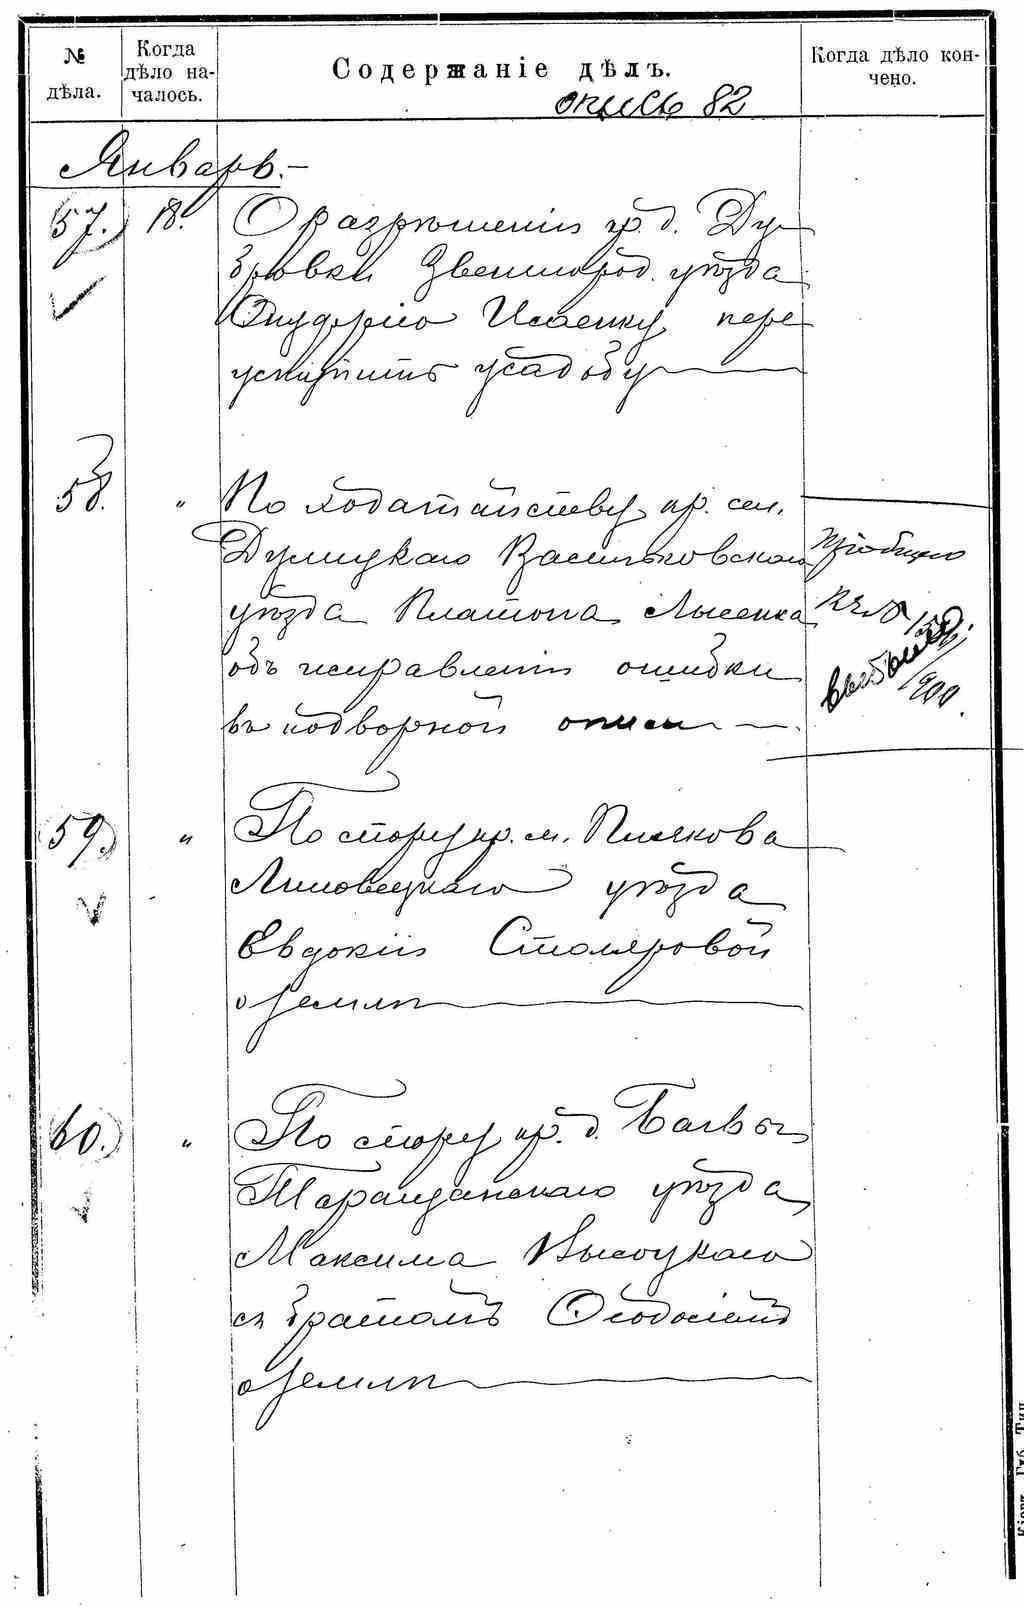 № дѣла.
Когда дѣло началось.
Содержаніе дѣлъ.
Когда дѣло кончено.
опись 82
Январь.-
57. 18. О разрѣшеніи кр. д. Ду-
бровки Звенигород. уѣзда
Исаенку пере
уступить усадьбу
58. " По ходатайству кр. сел.
Дулицкаго Васильковскаго
уѣзда Платона Лысенка
объ исправленіи ошибки
въ подворной описи
къ № 150/900.
выбыло
59. " По спору кр. м. Пискова
Липовецкаго уѣзда
Евдокіи Столяровой
о землѣ
60. " По спору кр. д.
Таращанскаго уѣзда
Максима Высоцкаго
съ братомъ Ѳеодосіемъ
о землѣ
Кіевъ. Губ. Тип.